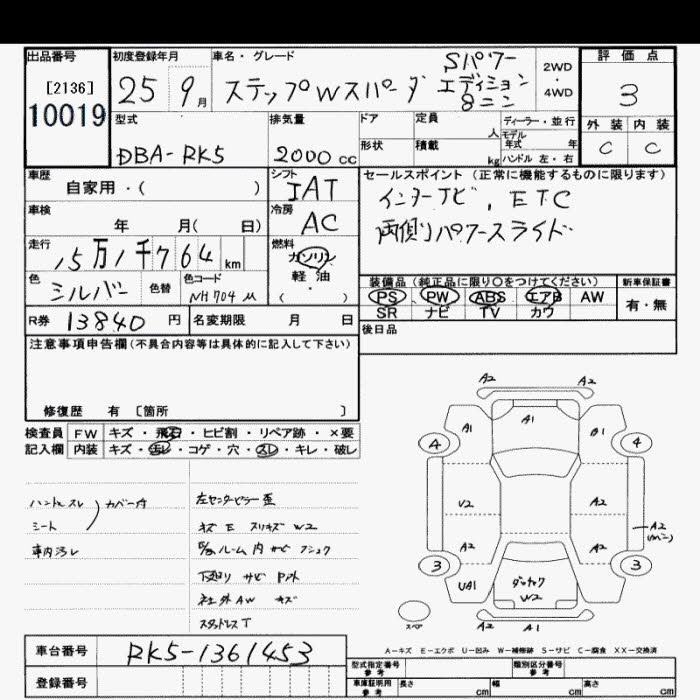 出品番号
[2136]
10019
初度登録年月
25 9月
車名・グレード
ステップWスパーダ
Sパワー
エディション
8ニン
2WD
・
4WD
評価点
3
外装 内装
C C
型式
DBA-RK5
排気量
2000 cc
ドア 定員 人
ディーラー・並行
モデル
年式 年
形状 積載 kg
ハンドル 左・右
車歴
自家用・( )
シフト
IAT
セールスポイント(正常に機能するものに限ります)
インターナビ, ETC
両側パワースライド
車検
年 月( 日)
冷房
AC
走行
15万1千764 km
燃料
ガソリン
軽・油
( ・ )
色
シルバー
色替
色コード
NH704M
装備品(純正品に限り○をつけてください)
PS PW ABS エアB AW
SR ナビ TV カワ
新車保証書
有・無
R券 13840 円
名変期限 月 日
後日品
注意事項申告欄(不具合内容等は具体的に記入して下さい)
修復歴 有 〔箇所 〕
検査員
記入欄
FW キズ・飛石・ヒビ割・リペア跡・×要
内装 キズ・汚レ・コゲ・穴・スレ・キレ・破レ
ハンドルスレ
シート
カバー内
車内汚レ
左センターピラー歪
キズ E スリキズ W2
E/gルーム内 サビ フショク
下廻り サビ P.ハト
社外AW キズ
スタットレスT
A2 A2
A1
A1 B1
4 4
U2 A2
A2 A2
A2
3 3
UA1
W2
スペア
A2 A1
A-キズ E-エクボ U-凹み W-補修跡 S-サビ C-腐食 XX-交換済
車台番号
RK5-1361453
登録番号
型式指定番号
参考
類別区分番号
参考
車庫証明用
参考
長さ cm
幅 cm
高さ cm